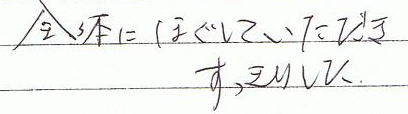 全体にほぐしていただき
すっきりしした